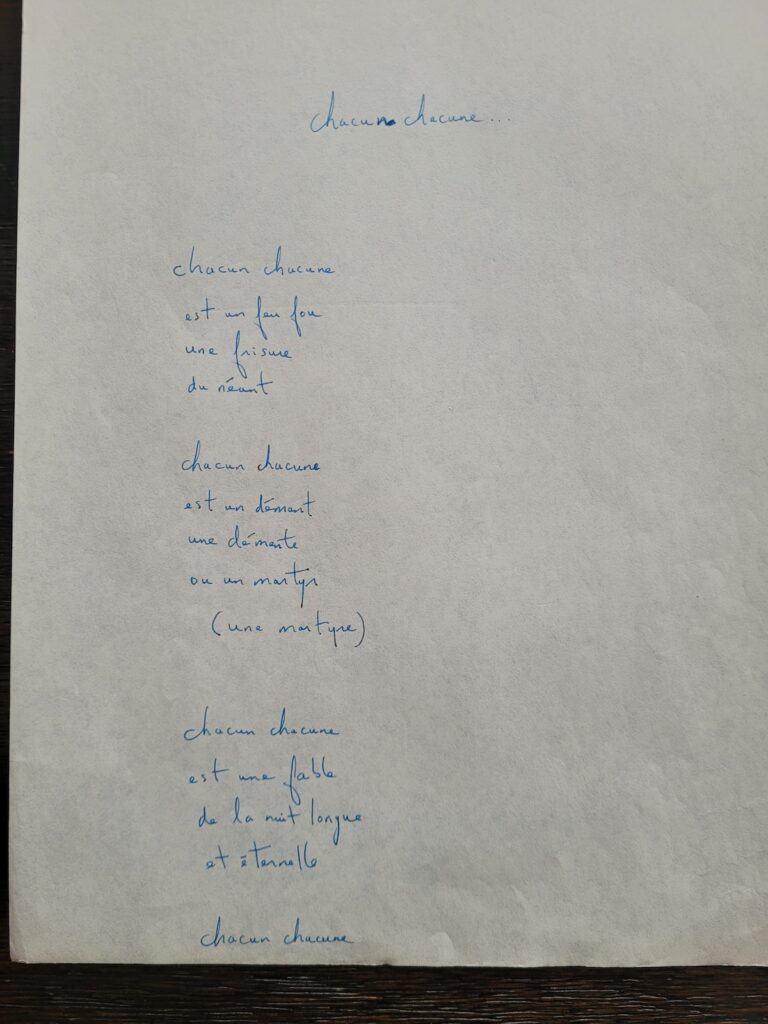 chacun chacune...
chacun chacune
est un feu fou
une frisure
du néant
chacun chacune
est un dément
une démente
ou un martyr
(une martyre)
chacun chacune
est une fable
de la nuit longue
et éternelle
chacun chacune